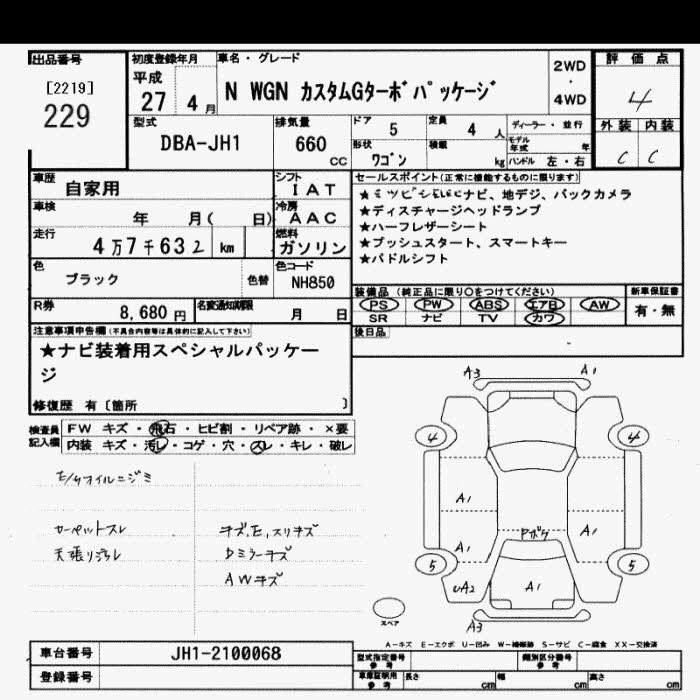 出品番号
[2219]
229
初度登録年月
平成
27 4月
車名・グレード
N WGN カスタムGターボパッケージ
2WD
・
4WD
評価点
4
外装 内装
C C
型式
DBA-JH1
排気量
660
cc
ドア
5
定員
4 人
ディーラー・並行
形状
ワゴン
積載
kg
モデル年式 年
ハンドル 左・右
車歴
自家用
シフト
IAT
車検
年 月( 日)
冷房
AAC
走行
4万7千632 km
燃料
ガソリン
色
ブラック
色替
色コード
NH850
R券
8,680円
名変通知期限
月 日
セールスポイント(正常に機能するものに限ります)
★ミツビシELECナビ、地デジ、バックカメラ
★ディスチャージヘッドランプ
★ハーフレザーシート
★プッシュスタート、スマートキー
★パドルシフト
装備品(純正品に限り○をつけてください)
PS PW ABS エアB AW
SR ナビ TV カワ
新車保証書
有・無
後日品
注意事項申告欄(不具合内容等は具体的に記入して下さい)
★ナビ装着用スペシャルパッケー
ジ
修復歴 有〔箇所 〕
検査員
記入欄
FW キズ・飛石・ヒビ割・リペア跡・×要
内装 キズ・汚レ・コゲ・穴・スレ・キレ・破レ
E/Gオイルニジミ
カーペットスレ
天張リヨゴレ
キズ、E、スリキズ
Dミラーキズ
AWキズ
A3 A1
4 4
A1
Pボケ
A1
A1
5 5
A2
A1
A3
スペア
A-キズ E-エクボ U-凹み W-補修跡 S-サビ C-腐食 XX-交換済
車台番号
JH1-2100068
登録番号
型式指定番号
参考
類別区分番号
参考
車庫証明用
参考
長さ cm 幅 cm 高さ cm